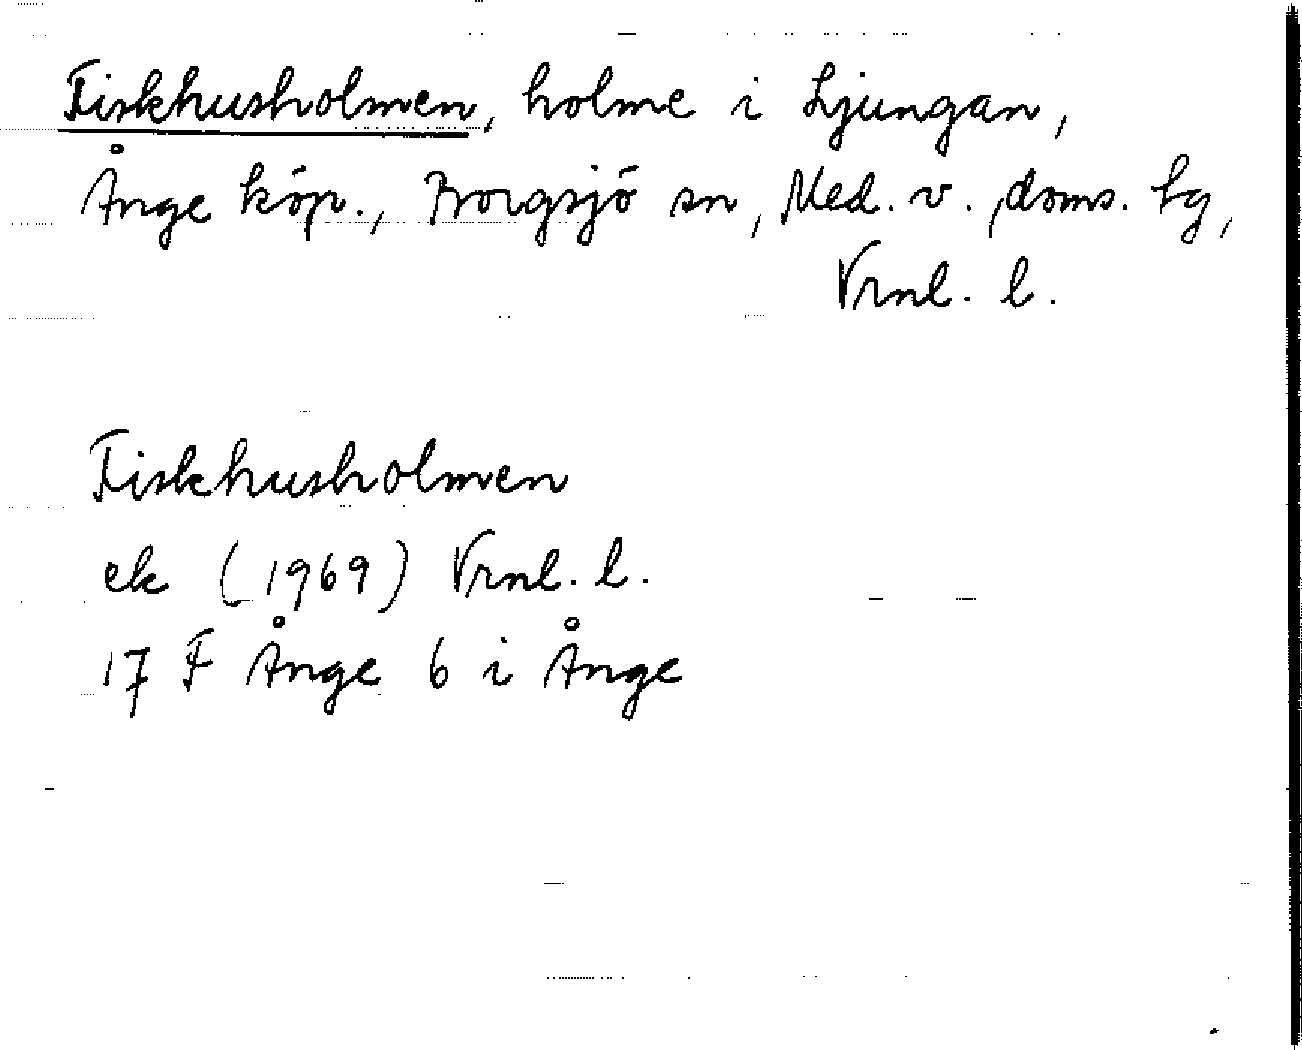 Fiskhusholmen, holme i Ljungan,
Ånge köp., Borgsjö sn, Med. v. doms. hg,
Vrnl. l.
Fiskhusholmen
ek (1969) Vrnl. l.
17 F Ånge 6 i Ånge